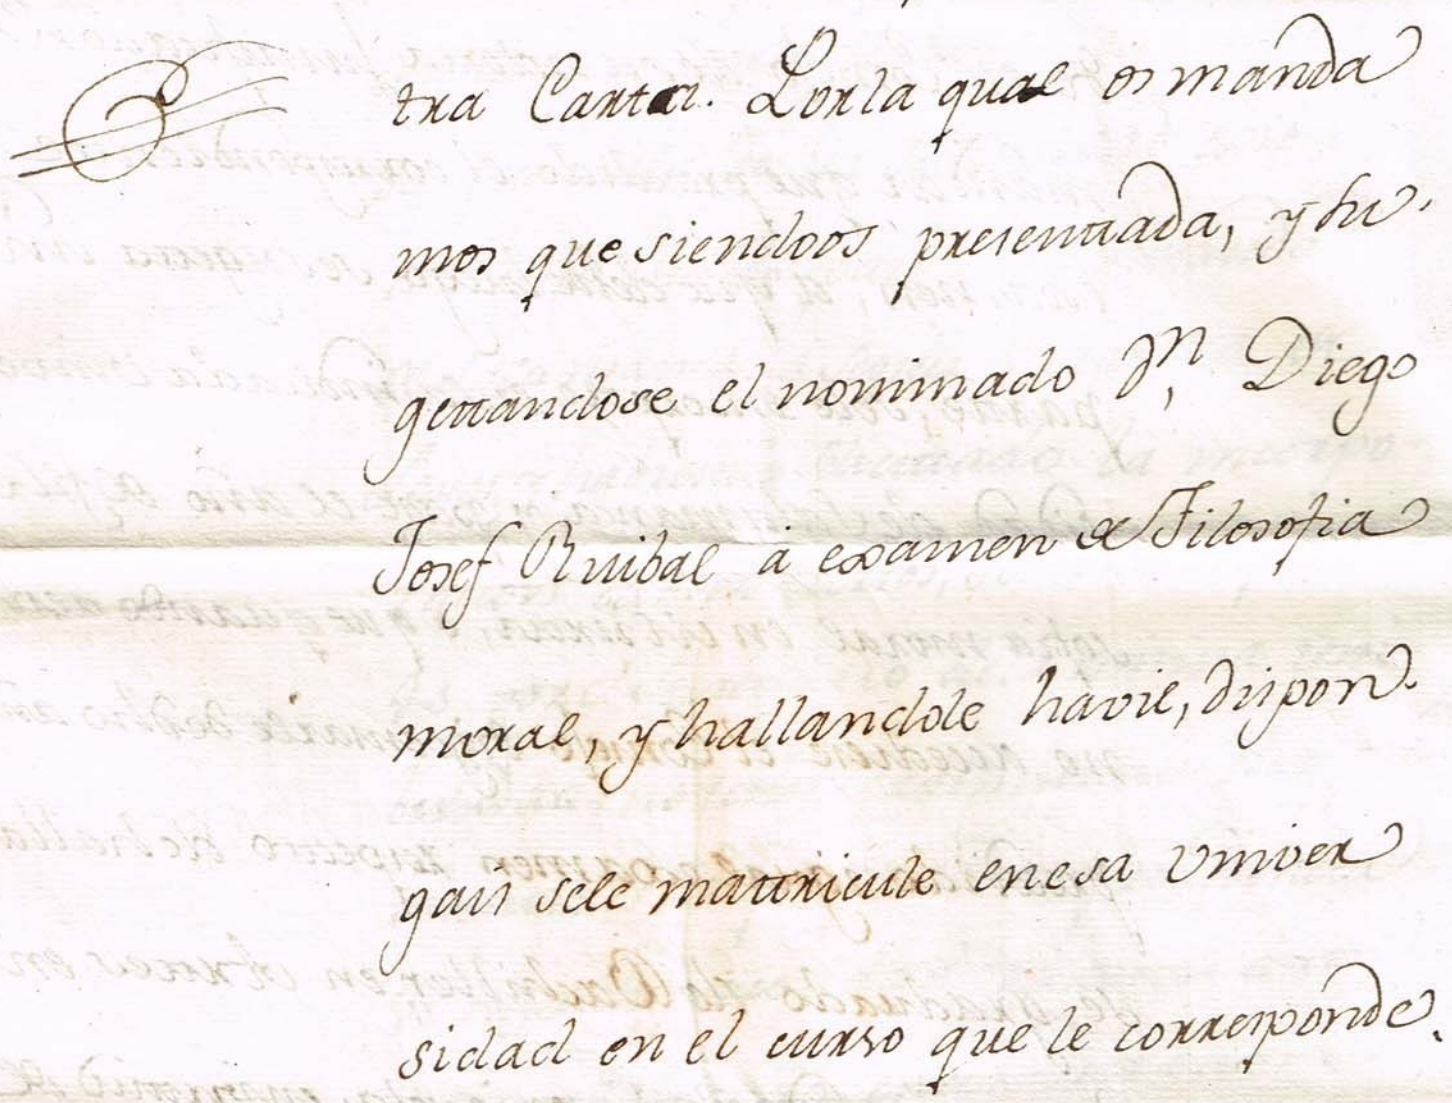 tra Carta. Por la qual os manda
mos que siendoos presentada, y su.
gettandose el nominado Dn, Diego
Josef Ruibal á examen de Filosofia
moral, y hallandole havil, dispon.
gais sele mattricule en esa Univer
sidad en el curso que le corresponde.